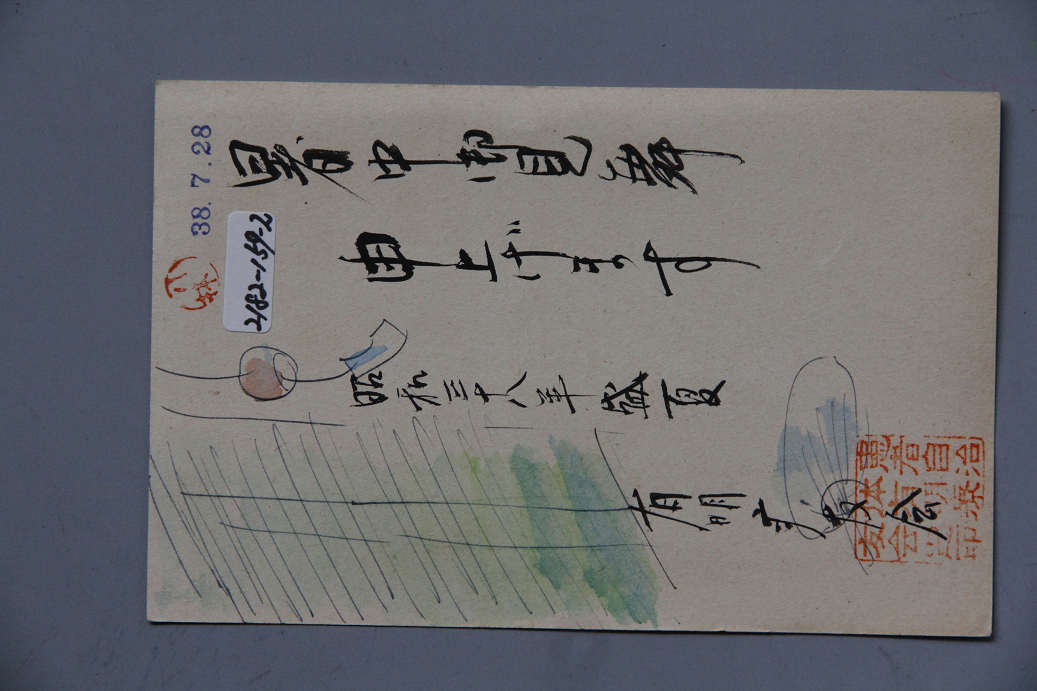 38.7.28
2182-159-2
暑中御見舞
申上げます
昭和三十八年盛夏
有明